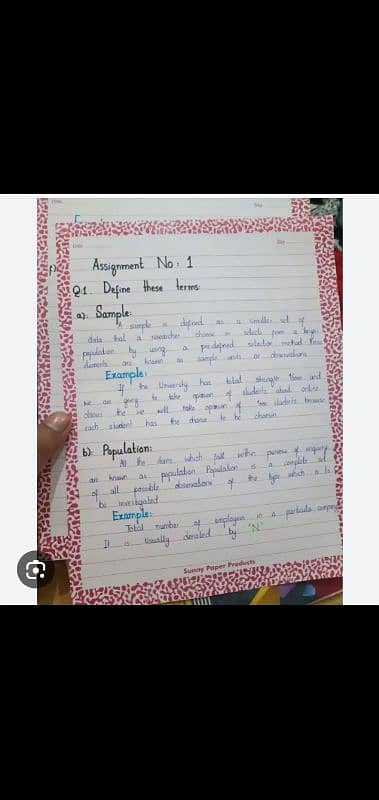 Assignment No. 1
Q1. Define these terms:
a). Sample:
A sample is defined as a smaller set of
data that a researcher choose or selects from a large
population by using a pre defined selection method. These
elements are known as sample units or observations.
Example:
If the University has total strength 1000 and
we are going to take opinion of students about online
classes the we will take opinion of students because
each student has the chance to be chosen
b). Population:
All the items which fall within purview of enquiry
are known as population Population is a complete set
of all possible observations of the type which is to
be investigated
Example:
Total number of employees in a particular company
It is Usually denoted by 'N'
Sunny Paper Products